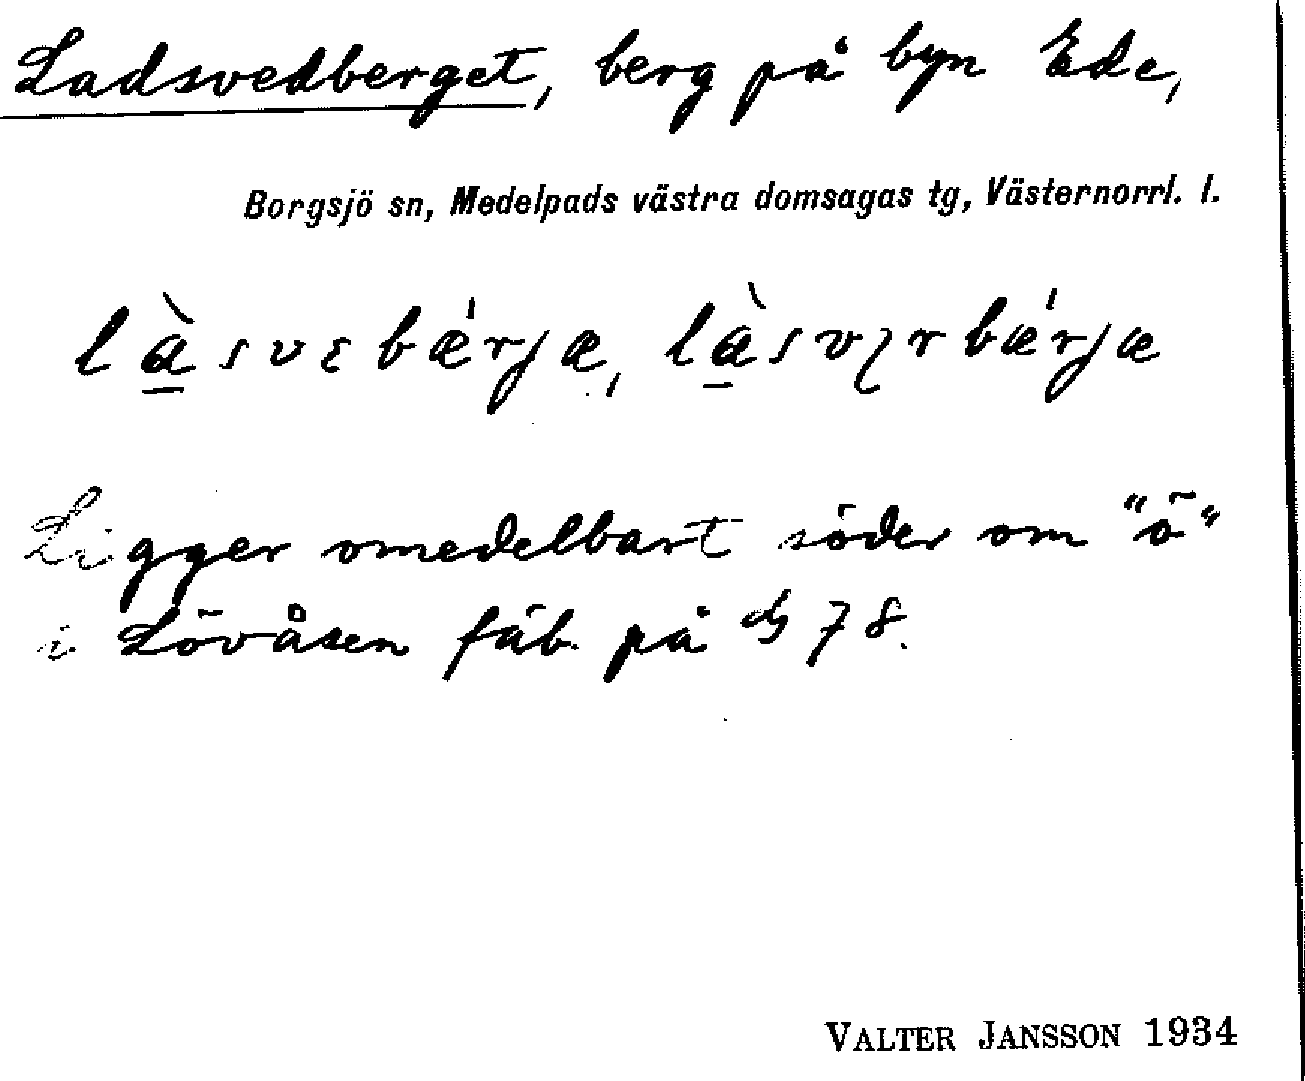 Ladsvedberget, berg på byn Ede,
Borgsjö sn, Medelpads västra domsagas tg, Västernorrl. l.
là̱svεbǽrjæ, là̱svɿrbǽrjæ
Ligger omedelbart söder om "ö"
i Lövåsen fäb. på 78.
VALTER JANSSON 1934